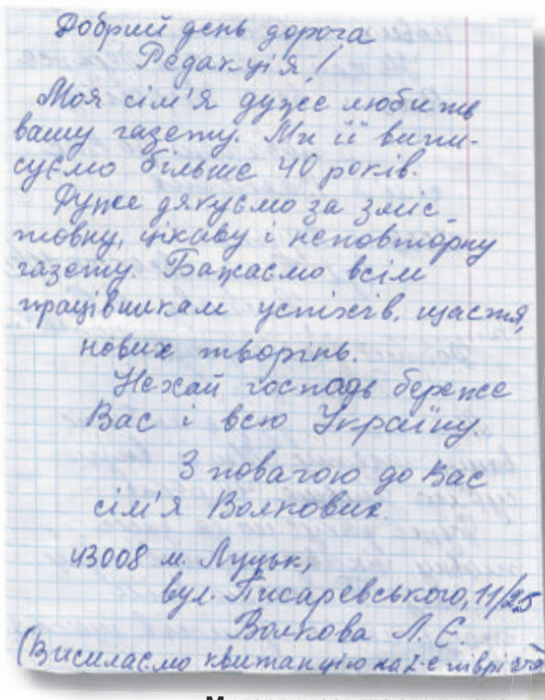 Добрий день дорога
Редакція!
Моя сім'я дуже любить
вашу газету. Ми її випи-
суємо більше 40 років.
Дуже дякуємо за зміс-
товну, цікаву і неповторну
газету. Бажаємо всім
працівникам успіхів, щастя,
нових творінь.
Нехай господь береже
Вас і всю Україну.
З повагою до Вас
сім'я Волкових
43008 м. Луцьк,
вул. Писаревського, 11/25
Волкова Л. Є.
(Висилаємо квитанцію на 2-е півріччя)